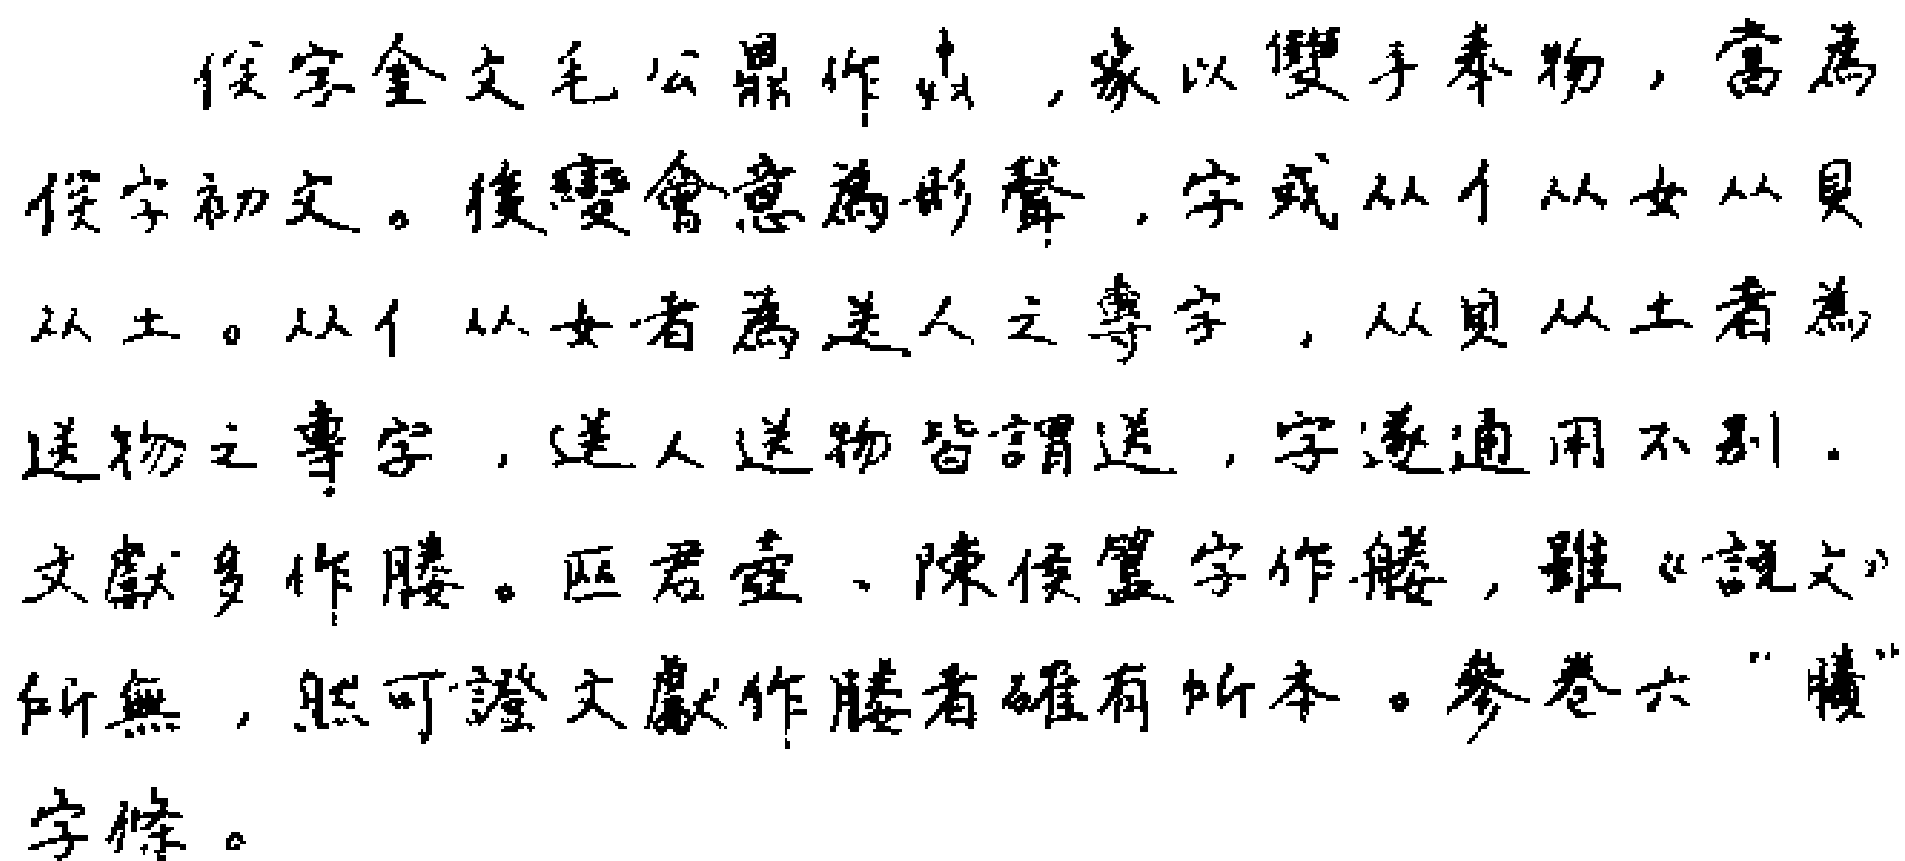 俟字金文毛公鼎作，象以雙手奉物，當為
俟字初文。後變會意為形聲，字或从亻从女从貝
从土。从亻从女者為送人之專字，从貝从土者為
送物之專字，送人送物皆謂送，字遂通用不別。
文獻多作媵。匹君壺、陳侯簋字作媵，雖《說文》
所無，然可證文獻作媵者確有所本。參卷六“賸”
字條。